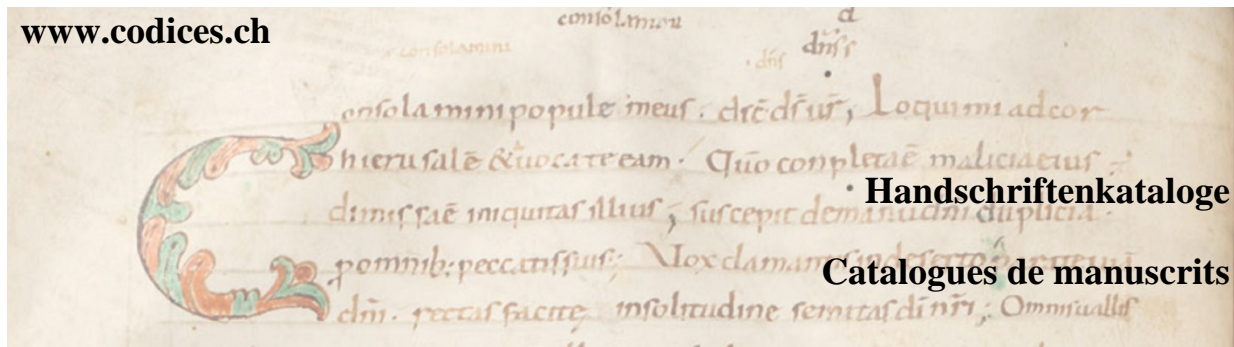 www.codices.ch
consolamini
consolamini
d
dn̄s
dn̄s
Consolamini popule meus. dic̄ d̄s ur̄; Loquimini ad cor
hierusalē & uocate eam. Qm̄ conpleta ē malicia eius;
dimissa ē iniquitas illius; suscepit de manu dn̄i duplicia
p omnib; peccatis suis; Vox clamantis in deserto parate uiā
dn̄i. rectas facite in solitudine semitas di nr̄i; Omnis uallis
Handschriftenkataloge
Catalogues de manuscrits